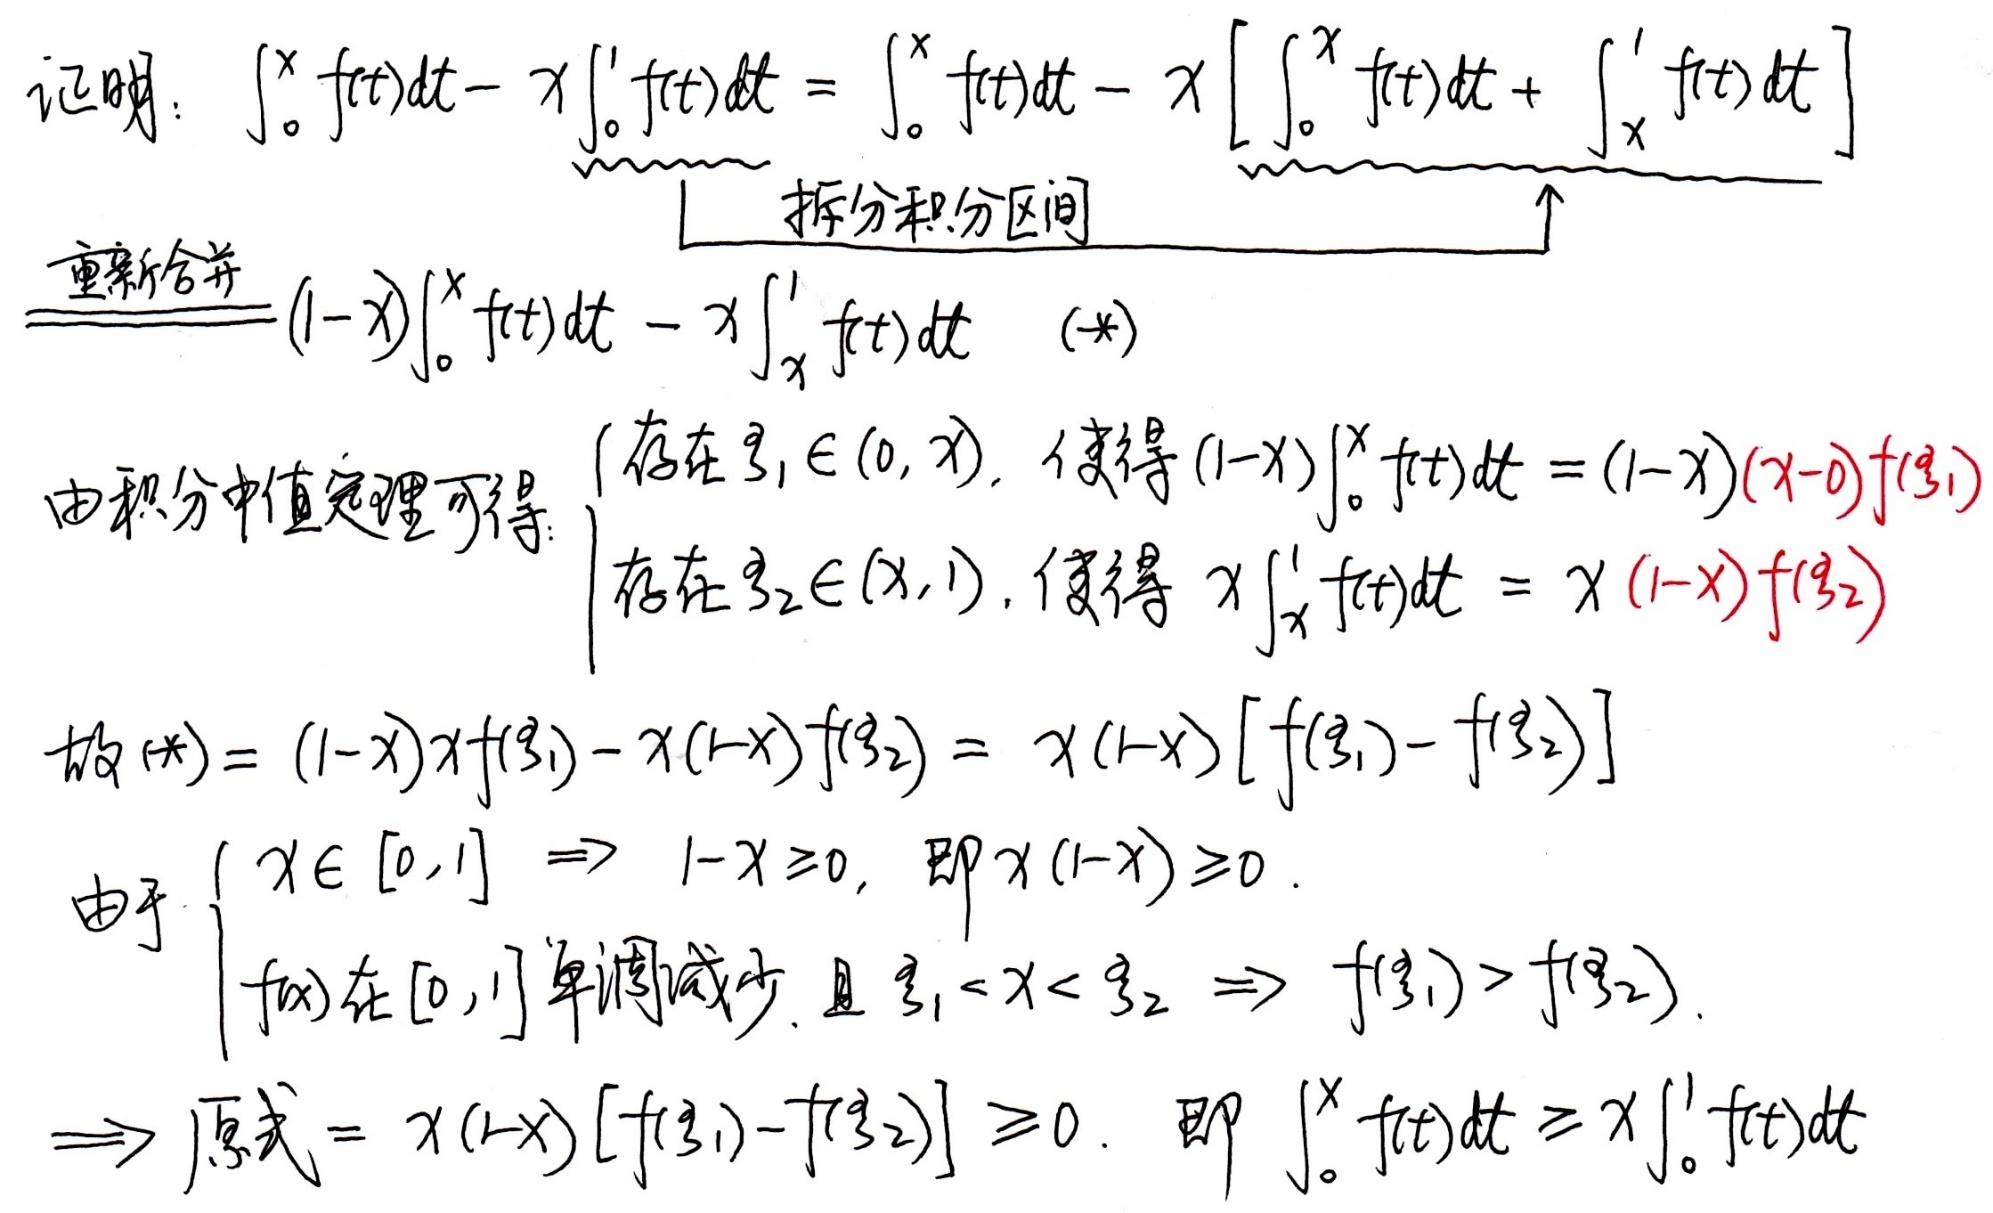 证明: ∫₀ˣ f(t)dt - x∫₀¹ f(t)dt = ∫₀ˣ f(t)dt - x[∫₀ˣ f(t)dt + ∫ₓ¹ f(t)dt]
拆分积分区间
重新合并 (1-x)∫₀ˣ f(t)dt - x∫ₓ¹ f(t)dt (*)
由积分中值定理可得:
存在 ξ₁∈(0, x), 使得 (1-x)∫₀ˣ f(t)dt = (1-x)(x-0)f(ξ₁)
存在 ξ₂∈(x, 1), 使得 x∫ₓ¹ f(t)dt = x(1-x)f(ξ₂)
故(*) = (1-x)xf(ξ₁) - x(1-x)f(ξ₂) = x(1-x)[f(ξ₁) - f(ξ₂)]
由于
x∈[0,1] ⇒ 1-x≥0, 即x(1-x)≥0.
f(x)在[0,1]单调减少, 且 ξ₁<x<ξ₂ ⇒ f(ξ₁)>f(ξ₂).
⇒ 原式 = x(1-x)[f(ξ₁)-f(ξ₂)] ≥0. 即 ∫₀ˣ f(t)dt ≥ x∫₀¹ f(t)dt